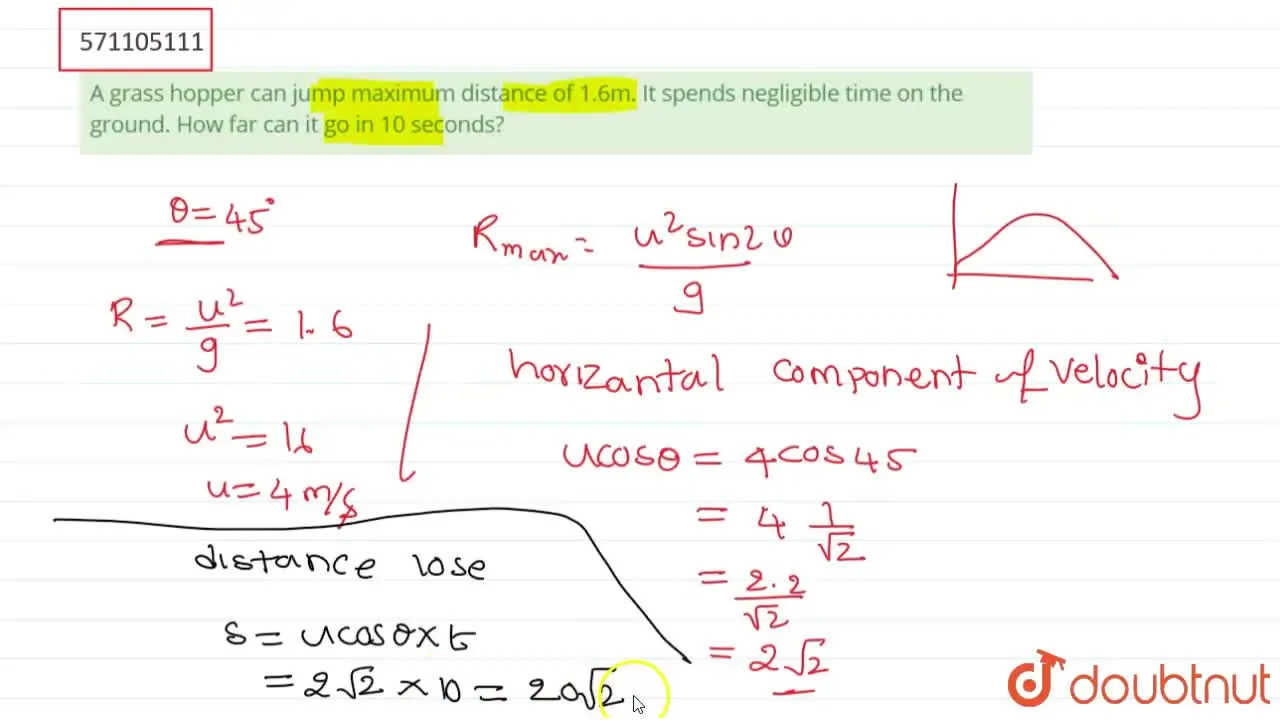 571105111
A grass hopper can jump maximum distance of 1.6m. It spends negligible time on the
ground. How far can it go in 10 seconds?
θ = 45°
R = u²/g = 1.6
u² = 16
u = 4 m/s
Rmax = u² sin2θ / g
horizantal component of velocity
ucosθ = 4cos45
= 4 1/√2
= 2·2/√2
= 2√2
distance 10se
s = ucosθ × t
= 2√2 × 10 = 20√2
doubtnut